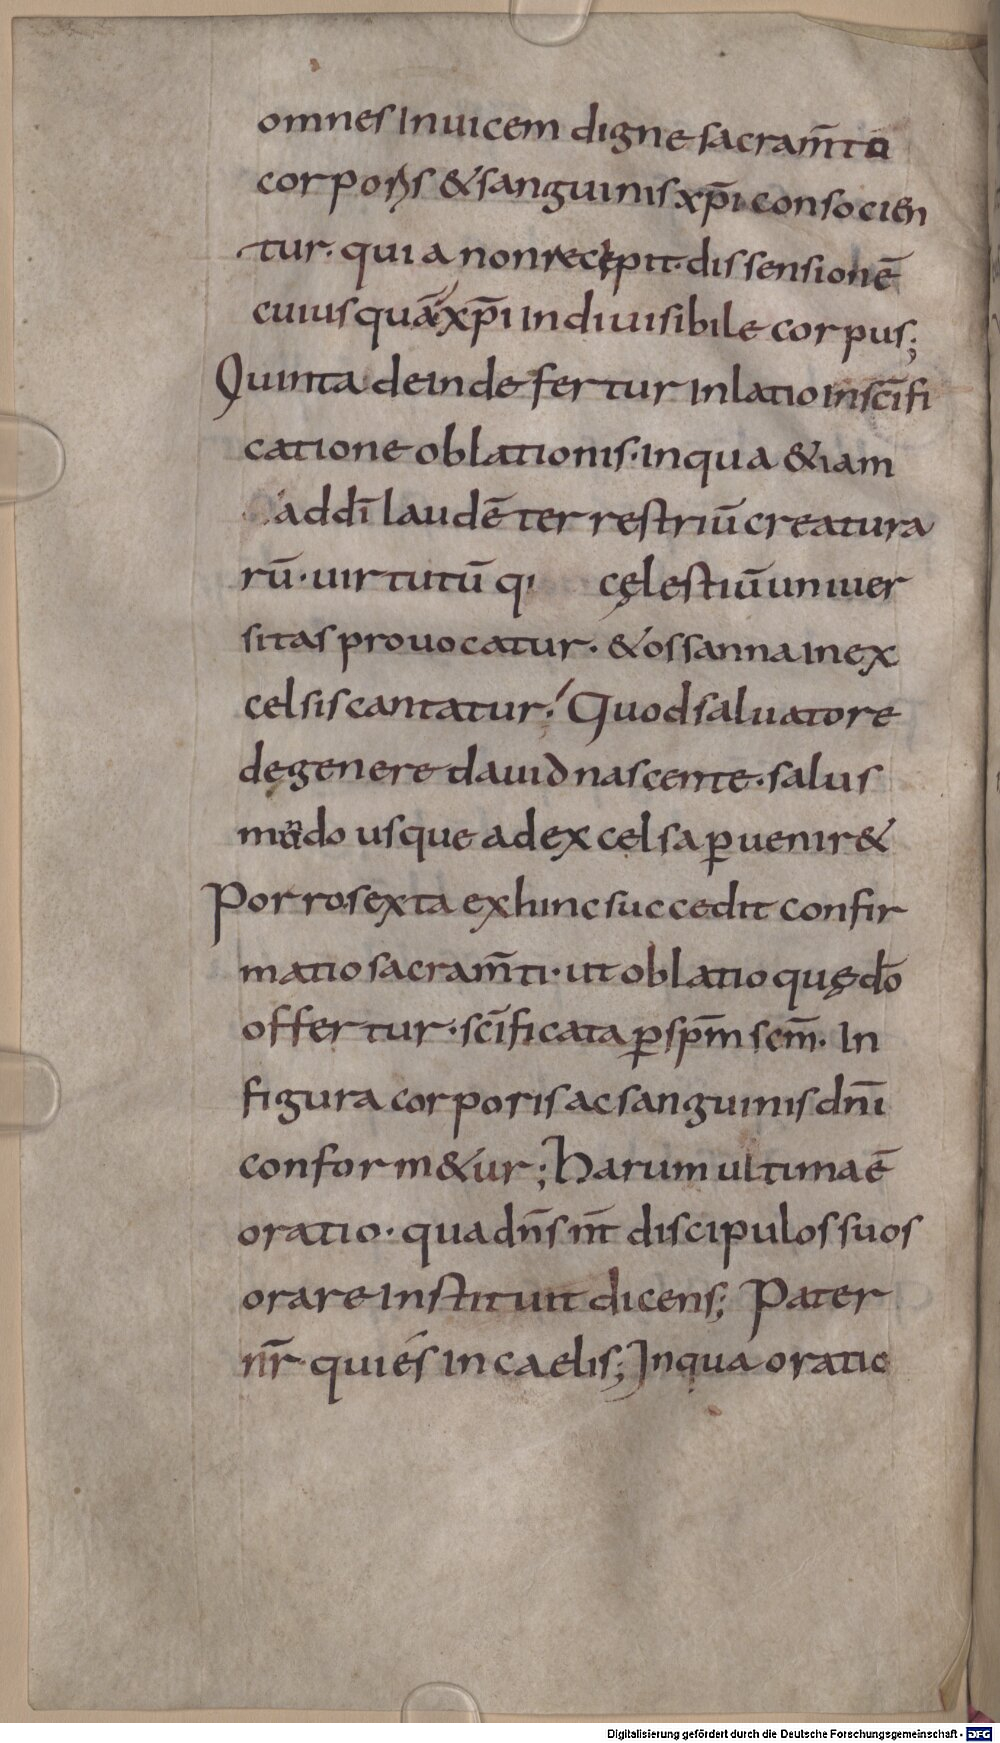 omnes inuicem digne sacram̄to
corporis &sanguinis xp̄i consocien
tur· quia non recępit· dissensionē
cuiusquā xp̄i indiuisibile corpus;
Quinta deinde fertur inlatio insc̄ifi
catione oblationis· inqua &iam
addī laudē terrestriū creatura
rū· uirtutū q; cęlestiū uniuer
sitas prouocatur· &ossanna inex
celsis cantatur; Quod saluatore
degenere dauid nascente· salus
mundo usque adexcelsa ꝑuenir&
Porro sexta exhinc succedit confir
matio sacram̄ti· ut oblatio quę dō
offertur· sc̄ificata ꝑ sp̄m scm̄· In
figura corporis ac sanguinis dn̄i
conform&ur; Harum ultima ē
oratio· qua dn̄s nr̄ discipulos suos
orare instituit dicens; Pater
nr̄ qui és in caelis; Inqua oratio
Digitalisierung gefördert durch die Deutsche Forschungsgemeinschaft - DFG